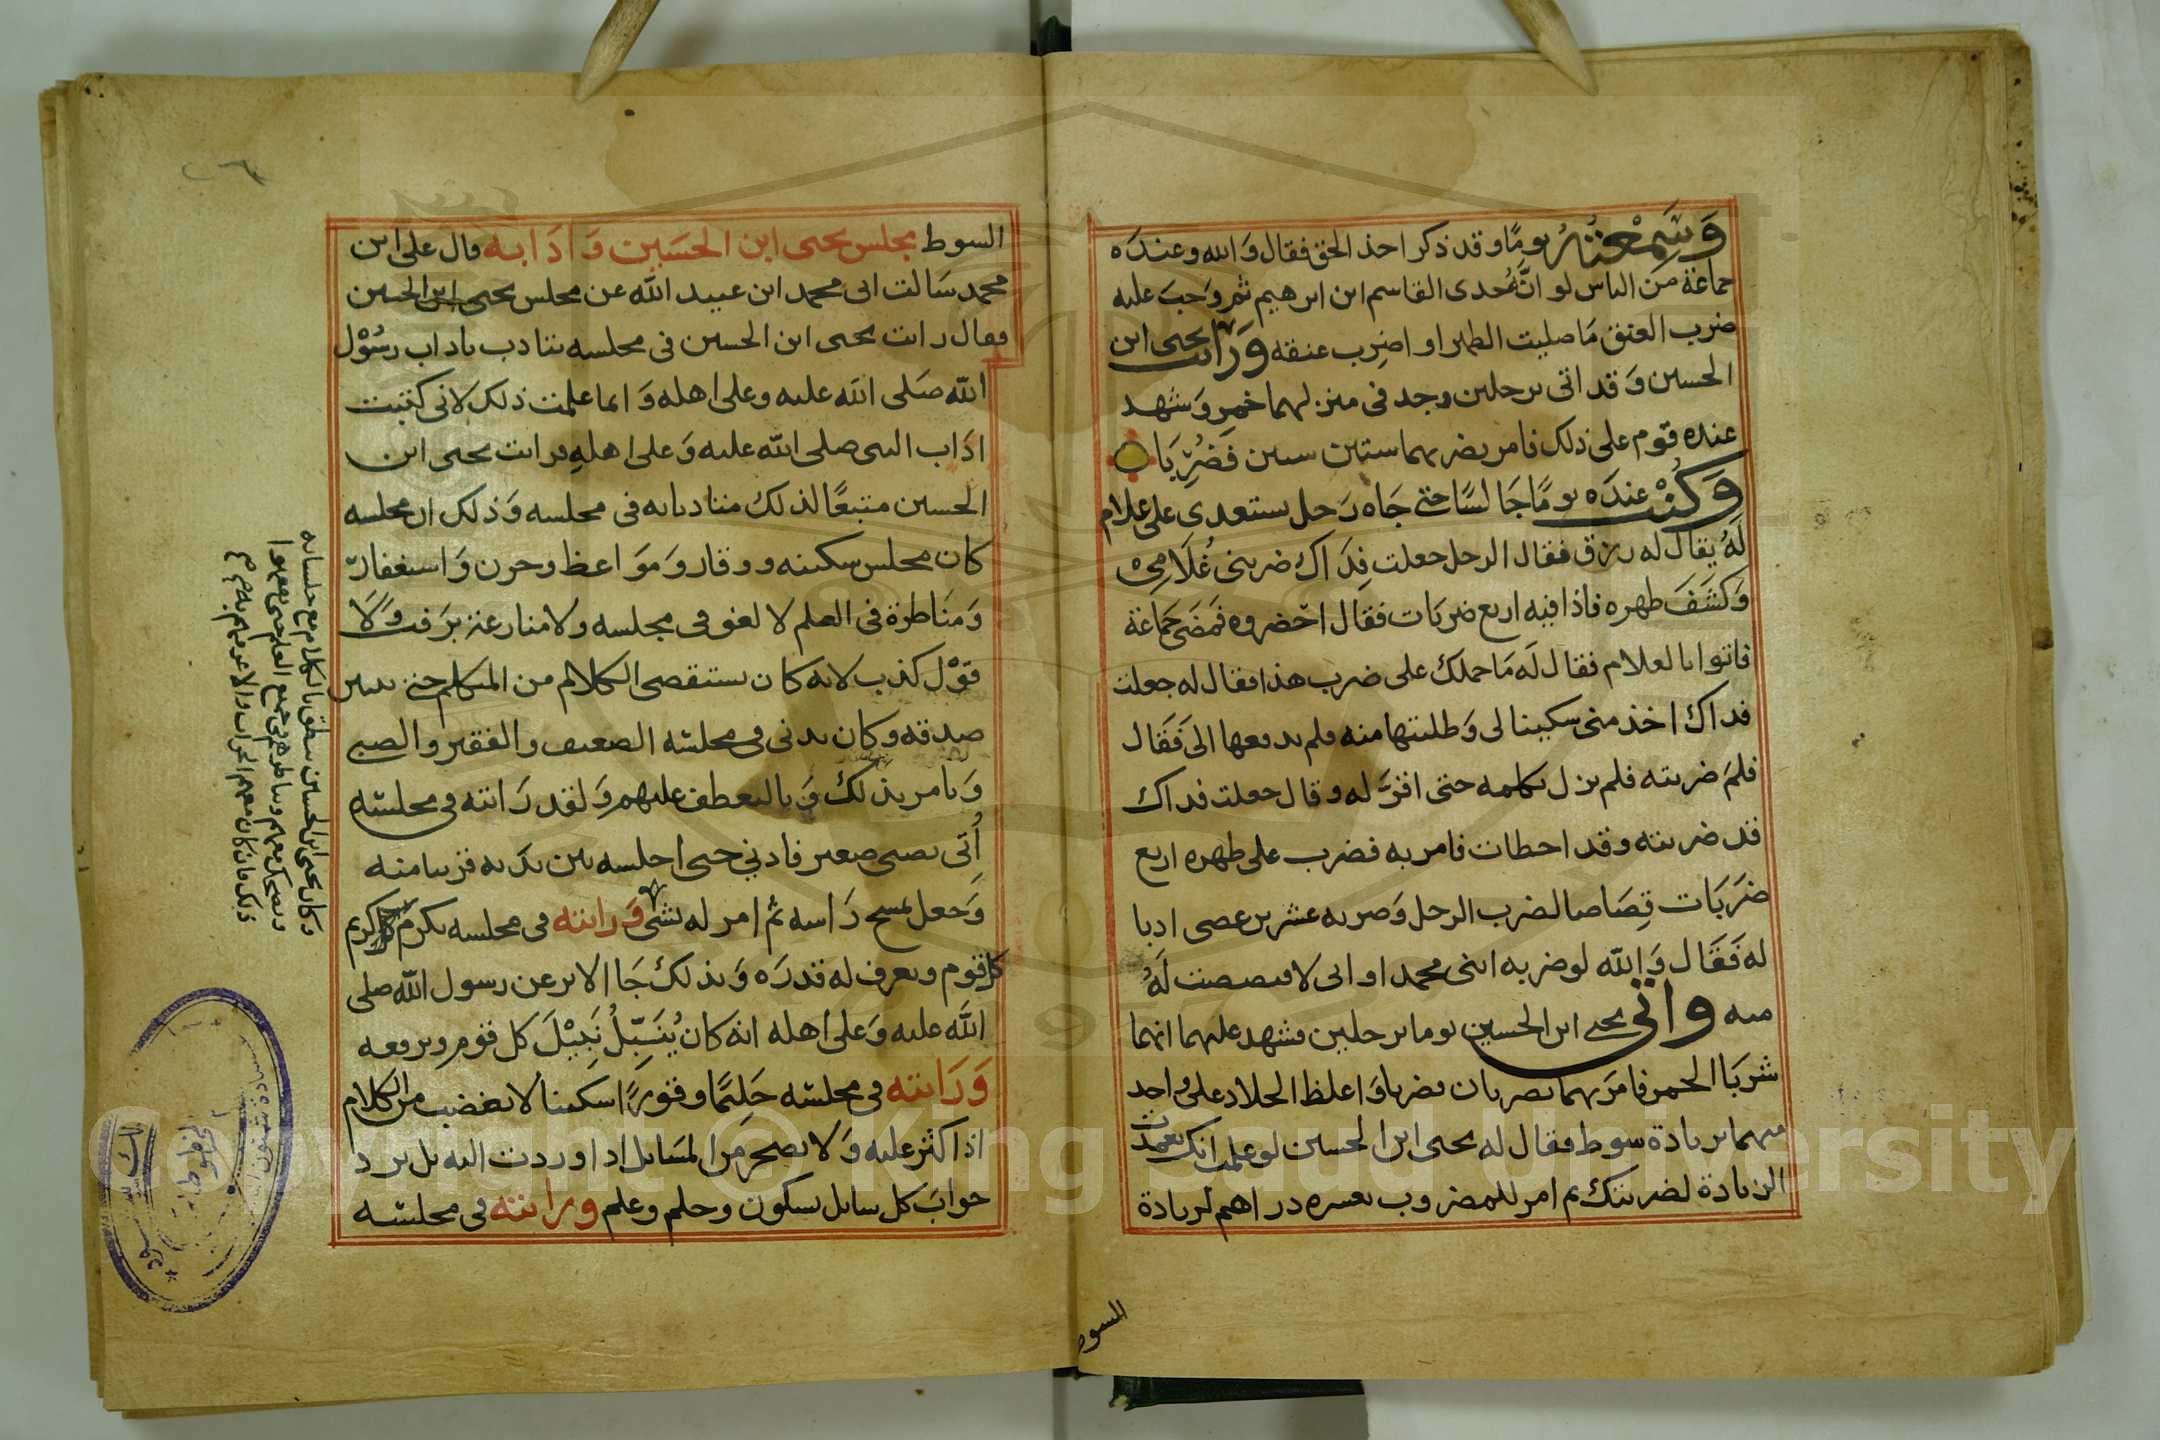 وَسَمِعْتُهُ يومًا وقد ذكر اخذ الحق فقال وَالله وعندَه
جماعَة مَن الناس لو انَّ نُحدى القاسم ابن ابرهيم ثم وَجبَ عليه
ضرب العنق مَا صليت الظهر او اضرِب عنقه وَرَايت يحيى ابن
الحسين وَقد اتى برجلين وجد فى منزلهما خمر وَشهد
عنده قوم على ذلك فامر بضربهما ستين ستين فَضُرِبَا
وَكنْتُ عندَه يومًا جَالسًا حتى جَاه رَجل يستعدى على غلام
لَهُ يقال له رزق فقال الرجل جعلت فِدَاك ضربنى غُلَامِى
وَكشَفَ ظهره فاذا فيه اربع ضربَات فقال احضروه فمضى جماعَة
فاتوا بالغلام فقال لَه مَا حملك على ضرب هذا فقال له جعلت
فداك اخذ منى سكينا لى وَطلبتها منه فلم يدفعها الى فَقَال
فلمَ ضربته فلم يزل يكلمه حتى اقرَّ له وقال جعلت فداك
قد ضربته وقد اخطات فامر به فضرب على ظهره اربع
ضرَبَات قِصَاصا لضرب الرجل وَضربه عشر بن عصى ادبا
له فَقَال وَالله لو ضربه ابنى محمد او ابى لاقتصصت لَهُ
منه وَاتى يحيى ابن الحسين يوما برجلين فشهد عليهما انهما
شربَا الخمر فامَر بهما يضربان فضربا وَاغلظ الجلاد على واحد
منهما بزيادة سوط فقال له يحيى ابن الحسين لو علمت انك تعمدت
الزيادة لضربتك ثم امر للمضروب بعشره دراهم لزيادة
السوط
السوط مجلس يحيى ابن الحسَين وَادَابه قال على ابن
محمد سَالت ابى محمد ابن عبيد الله عن مجلس يحيى ابن الحسين
فقال رايت يحيى ابن الحسين فى مجلسه يتادب باداب رسُوْل
الله صَلى الله عليه وعلى اهله وَانما علمت ذلك لانى كتبت
ادَاب النبى صلى الله عليه وَعلى اهلهِ فرايت يحيى ابن
الحسين متبعًا لذلك متادبا به فى مجلسه وَذلك ان مجلسه
كان مجلس سكينه ووقار وَمَوَاعظ وحزن وَاستغفار
وَمنَاظرة فى العلم لا لغو فى مجلسه ولا منازعة بَرَفث وَلَا
قوْل كذب لانه كان يستقصى الكلام من المتكلم حتى يتبين
صدقه وكان يدنى فى مجلسَه الضعيف والفقير والصبى
وَيامر بذلك وَبالتعطف عليهم وَلقد رَايته فى مجلسَه
اُتى بصبى صغير فادني حتى اجلسه بين يدَيه قريبا منه
وَجعل يمسح رَاسه ثم امر له بشى وَرَايته فى مجلسه يكرم كريم
كل قوم ويعرف له قدرَه وَبذلك جَا الاثر عن رسول الله صلى
الله عليه وَعلى اهله انه كان يُنَبِّلُ نَبِيْلَ كل قوم ويرفعه
وَرَايته فى مجلسَه حَليمًا وقورًا سكينا لا يغضب من الكلام
اذا كثر عليه وَلا يضجر مَن المسَايل اذا وردت اليه بل يرد
جوابَ كل سايل بسكون وحلم وعلم ورايته فى مجلسَه
وكان يحيى ابن الحسين ينطق بالكلام مع جلسايه